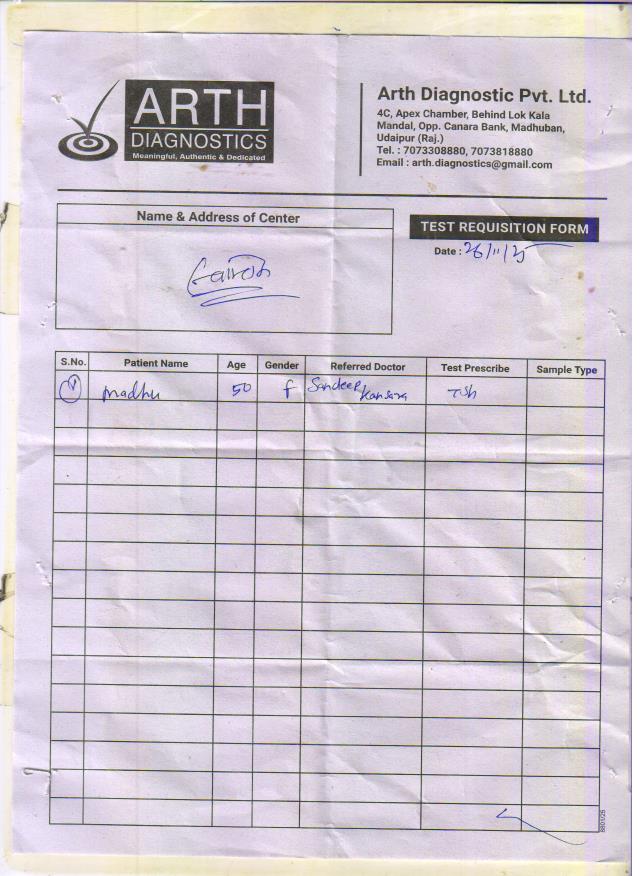 ARTH
DIAGNOSTICS
Meaningful, Authentic & Dedicated
Arth Diagnostic Pvt. Ltd.
4C, Apex Chamber, Behind Lok Kala
Mandal, Opp. Canara Bank, Madhuban,
Udaipur (Raj.)
Tel. : 7073308880, 7073818880
Email : arth.diagnostics@gmail.com
Name & Address of Center
TEST REQUISITION FORM
Date : 26/11/25
S.No. Patient Name Age Gender Referred Doctor Test Prescribe Sample Type
1 madhu 50 f Sandeep Kansara TSh